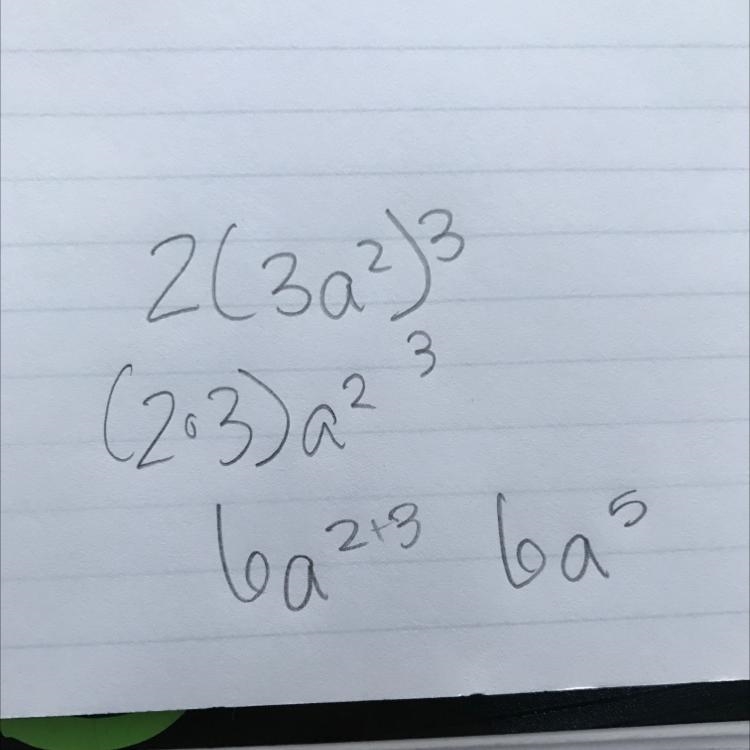 2(3a²)³
(2·3)a² ³
6a²⁺³ 6a⁵